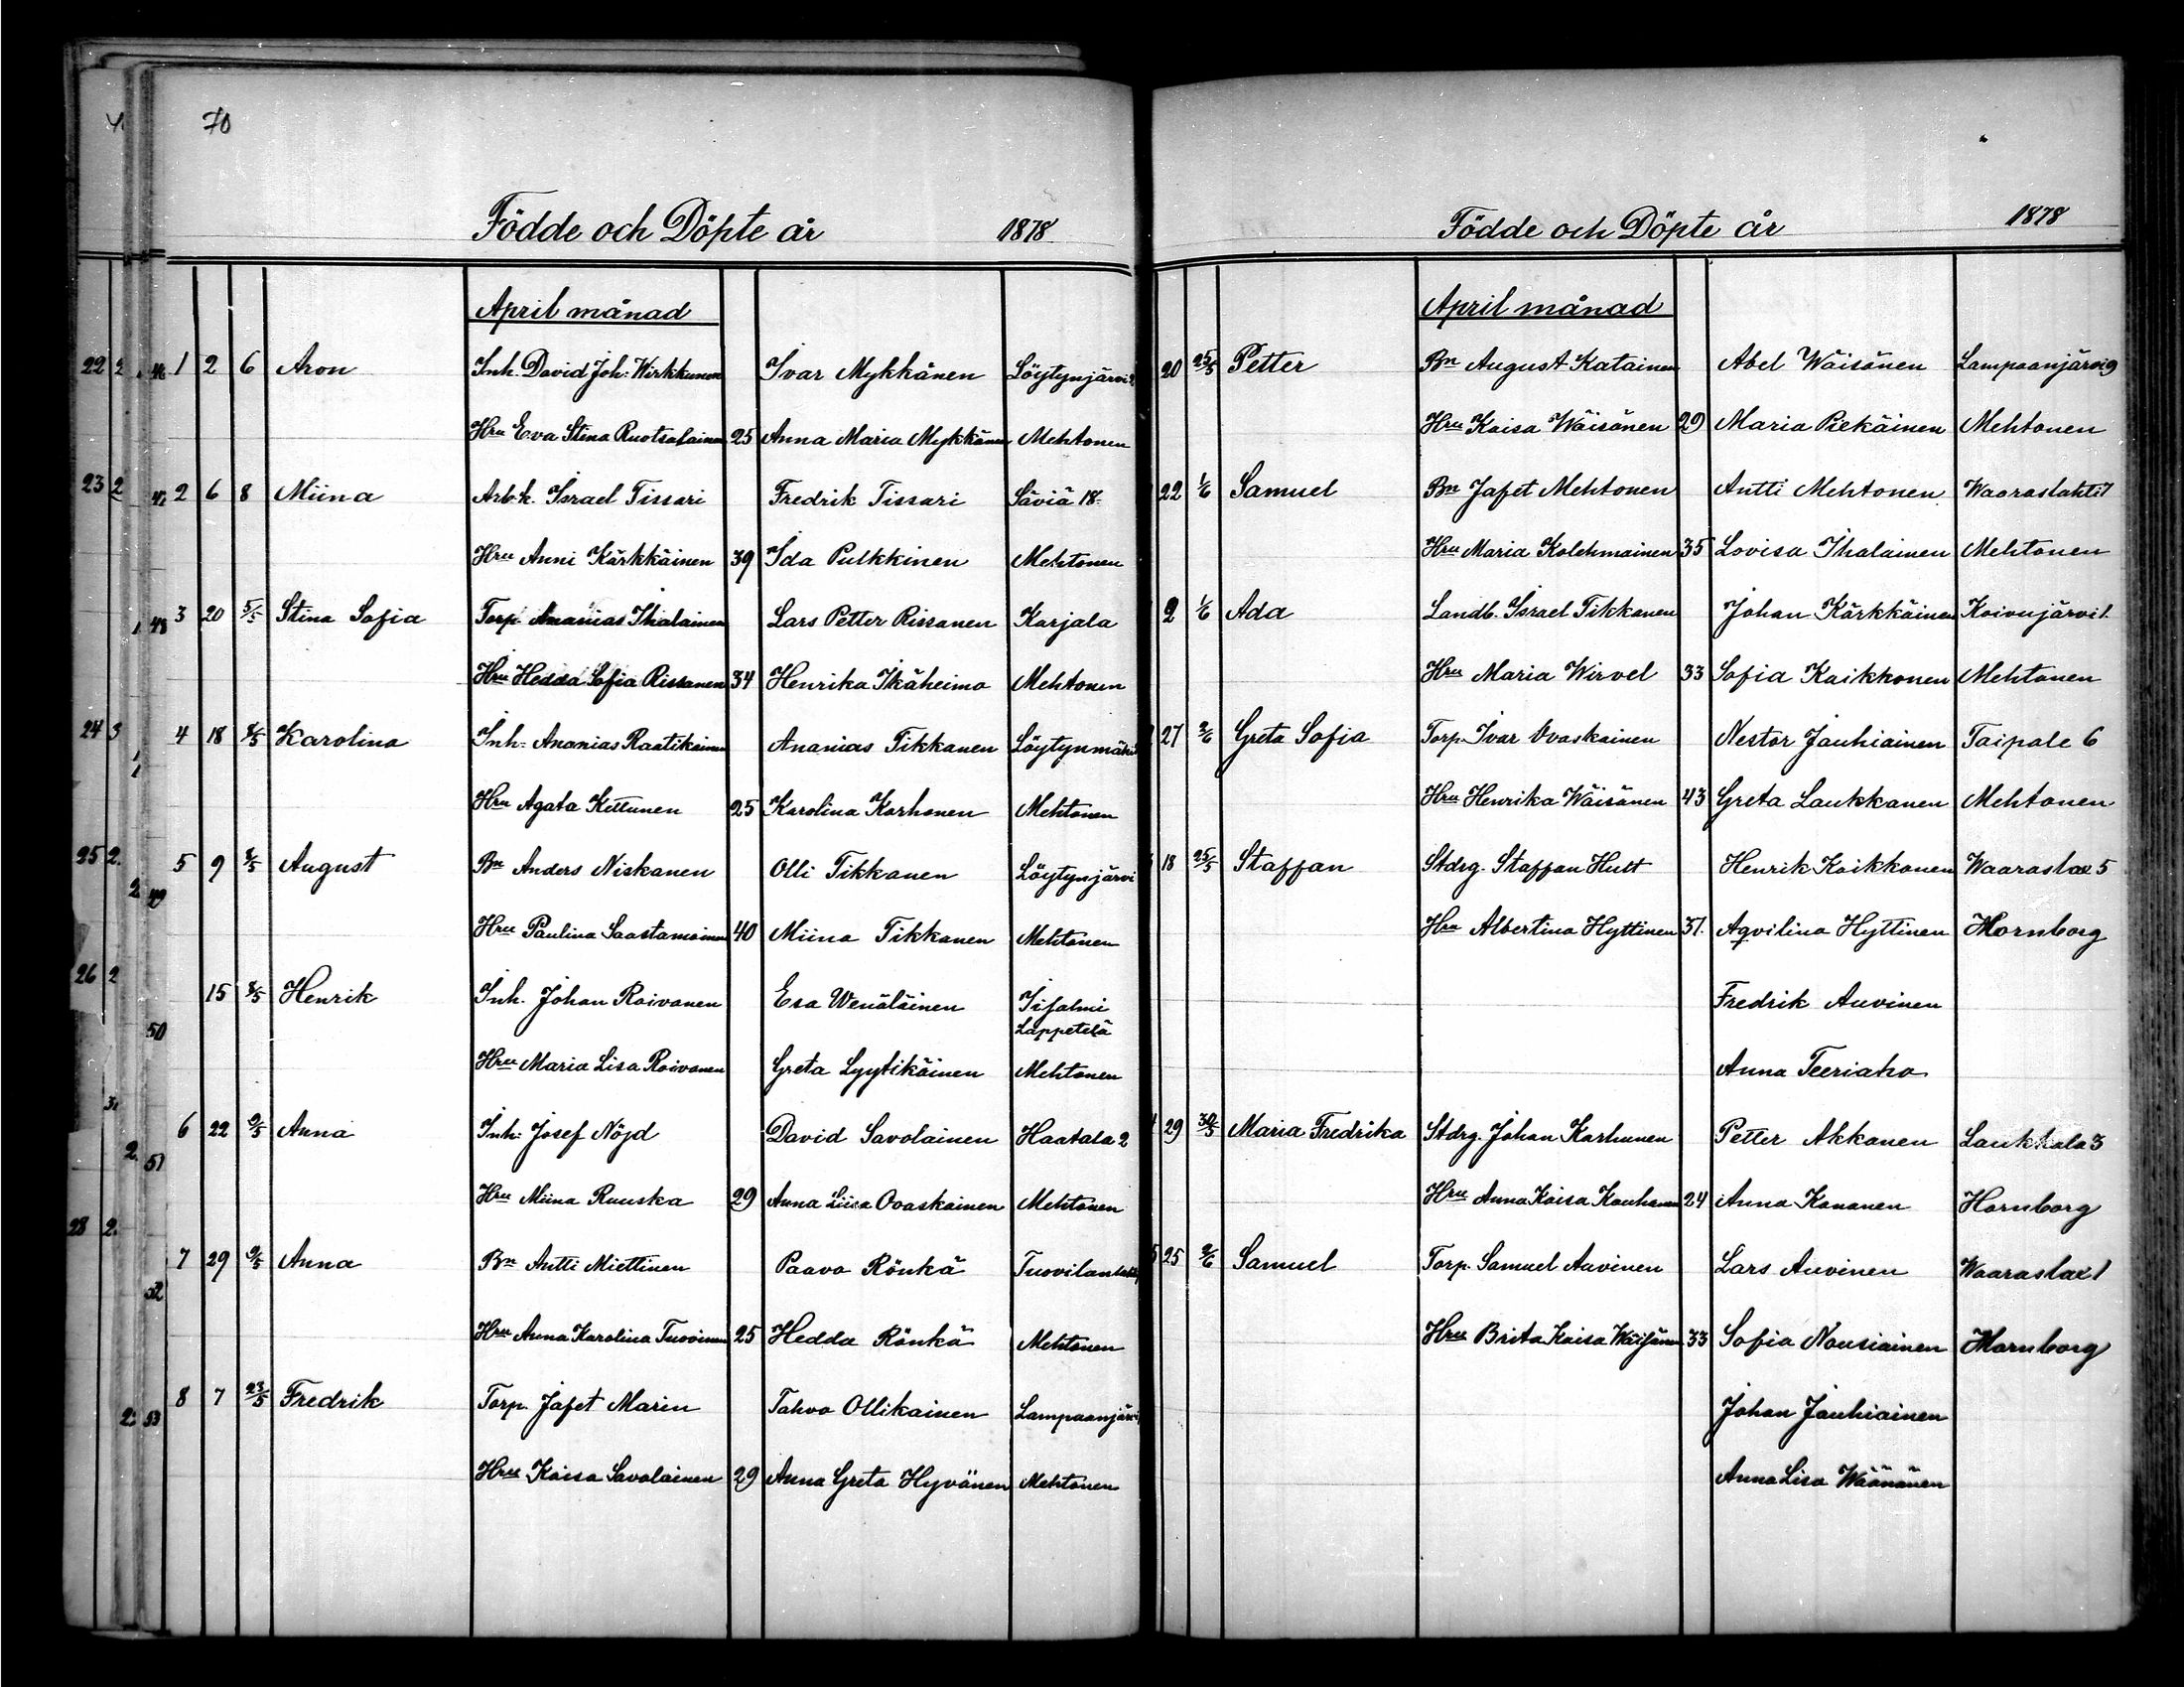 70
Födde och Döpte år 1878
April månad
1 2 6 Aron Inh. David Joh. Wirkkunen Ivar Mykkänen Löytynjärvi
Hru Eva Stina Ruotsalainen 25 Anna Maria Mykkänen Mehtonen
2 6 8 Miina Arb.k. Israel Tissari Fredrik Tissari Säviä 18
Hru Anni Kärkkäinen 39 Ida Pulkkinen Mehtonen
3 20 5/5 Stina Sofia Torp. Ananias Ihalainen Lars Petter Rissanen Karjala
Hru Hedda Sofia Rissanen 34 Henrika Ikäheimo Mehtonen
4 18 8/5 Karolina Inh. Ananias Raatikainen Ananias Tikkanen Löytynmäki
Hru Agata Kettunen 25 Karolina Korhonen Mehtonen
5 9 8/5 August Bn Anders Niskanen Olli Tikkanen Löytynjärvi
Hru Paulina Saastamoinen 40 Miina Tikkanen Mehtonen
15 8/5 Henrik Inh. Johan Roivanen Esa Wenäläinen Iisalmi
Lappetelä
Hru Maria Lisa Roivanen Greta Lyytikäinen Mehtonen
6 22 9/5 Anna Inh. Josef Nöjd David Savolainen Haatala 2
Hru Miina Ruuska 29 Anna Liisa Ovaskainen Mehtonen
7 29 9/5 Anna Bn Antti Miettinen Paavo Rönkä Tuovilanlahti
Hru Anna Karolina Tuovinen 25 Hedda Rönkä Mehtonen
8 7 23/5 Fredrik Torp. Jafet Marin Tahvo Ollikainen Lampaanjärvi
Hru Kaisa Savolainen 29 Anna Greta Hyvönen Mehtonen
Födde och Döpte år 1878
April månad
20 25/5 Petter Bn August Katainen Abel Wäisänen Lampaanjärvi 9
Hru Kaisa Wäisänen 29 Maria Piekäinen Mehtonen
22 1/6 Samuel Bn Jafet Mehtonen Antti Mehtonen Waaraslahti 7
Hru Maria Kolehmainen 35 Lovisa Ihalainen Mehtonen
2 1/6 Ada Landb. Israel Tikkanen Johan Kärkkäinen Koivujärvi 1.
Hru Maria Wirvel 33 Sofia Kaikkonen Mehtonen
27 2/6 Greta Sofia Torp. Ivar Ovaskainen Nestor Jauhiainen Taipale 6
Hru Henrika Wäisänen 43 Greta Laukkanen Mehtonen
18 25/5 Staffan Stdrg. Staffan Hutt Henrik Kaikkonen Waaraslax 5
Hru Albertina Hyttinen 31. Aqvilina Hyttinen Hornborg
Fredrik Auvinen
Anna Teeriaho
29 30/5 Maria Fredrika Stdrg. Johan Karhunen Petter Akkanen Laukkala 3
Hru Anna Kaisa Kauhanen 24 Anna Kananen Hornborg
25 2/6 Samuel Torp. Samuel Auvinen Lars Auvinen Waaraslax 1
Hru Brita Kaisa Wäisänen 33 Sofia Nousiainen Hornborg
Johan Jauhiainen
Anna Lisa Wäänänen